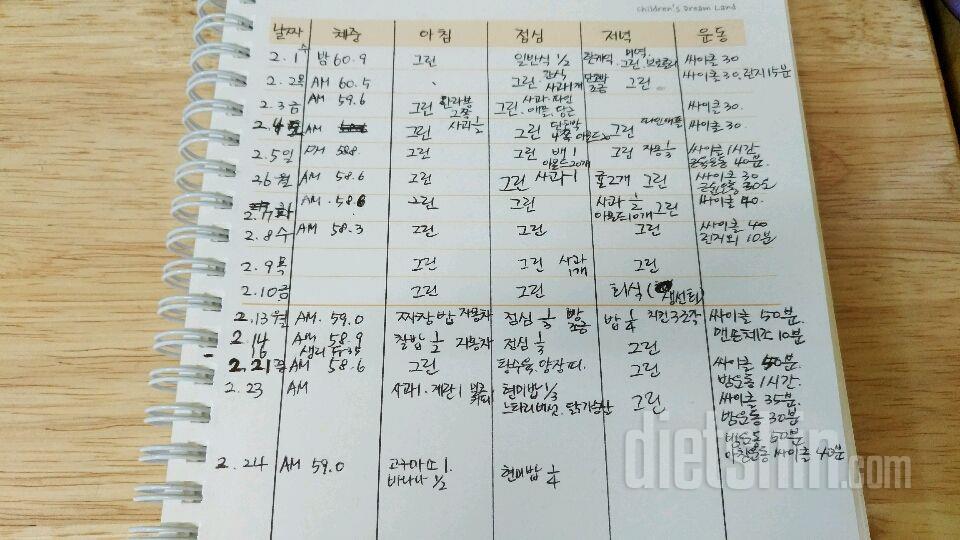 Children's Dream Land
날짜 체중 아침 점심 저녁 운동
2.1수 밤 60.9 그린 일반식 1/2 그린, 싸이클 30
2.2목 AM 60.5 그린, 간식 사과1개 단호박 조금 그린 싸이클 30, 런지 15분
2.3금 AM 59.6 그린 한라봉 2쪽 그린, 사과, 당근 싸이클 30.
2.4토 AM 그린 사과 1/2 그린 단호박 4쪽 그린 파인애플 싸이클 30.
2.5일 AM 58.8. 그린 그린 배 1 아몬드 20개 그린 자몽 1/2 싸이클 1시간 근력운동 40분.
2.6월 AM 58.6 그린 그린 사과 1 귤2개 그린 싸이클 30 근력운동 30
2.7화 AM 58.6 그린 그린 사과 1/2 아몬드10개 그린 싸이클 40.
2.8수 AM 58.3 그린 그린 그린 싸이클 40 런지외 10분
2.9목 그린 그린 사과 1개 그린
2.10금 그린 그린 회식 (생선회)
2.13월 AM. 59.0 짜장밥 자몽차 점심 1/3 빵 조금 밥 1/4 치킨 3조각 싸이클 50분. 맨몬체조 10분
2.14 AM 58.9 찰밥 1/2 자몽차 점심 1/3 그린
16 생리
2.21 AM 58.6 그린 탕수육, 양장피. 그린 싸이클 50분. 밤운동 1시간.
2.23 AM 사과 1. 계란 1 현미밥 1/3 느타리버섯, 닭가슴살 그린 싸이클 35분. 밤운동 30분
밤운동 50분
2.24 AM 59.0 고구마 소 1. 바나나 1/2 현미밥 1/4 아침운동 싸이클 40분
dietshin.com